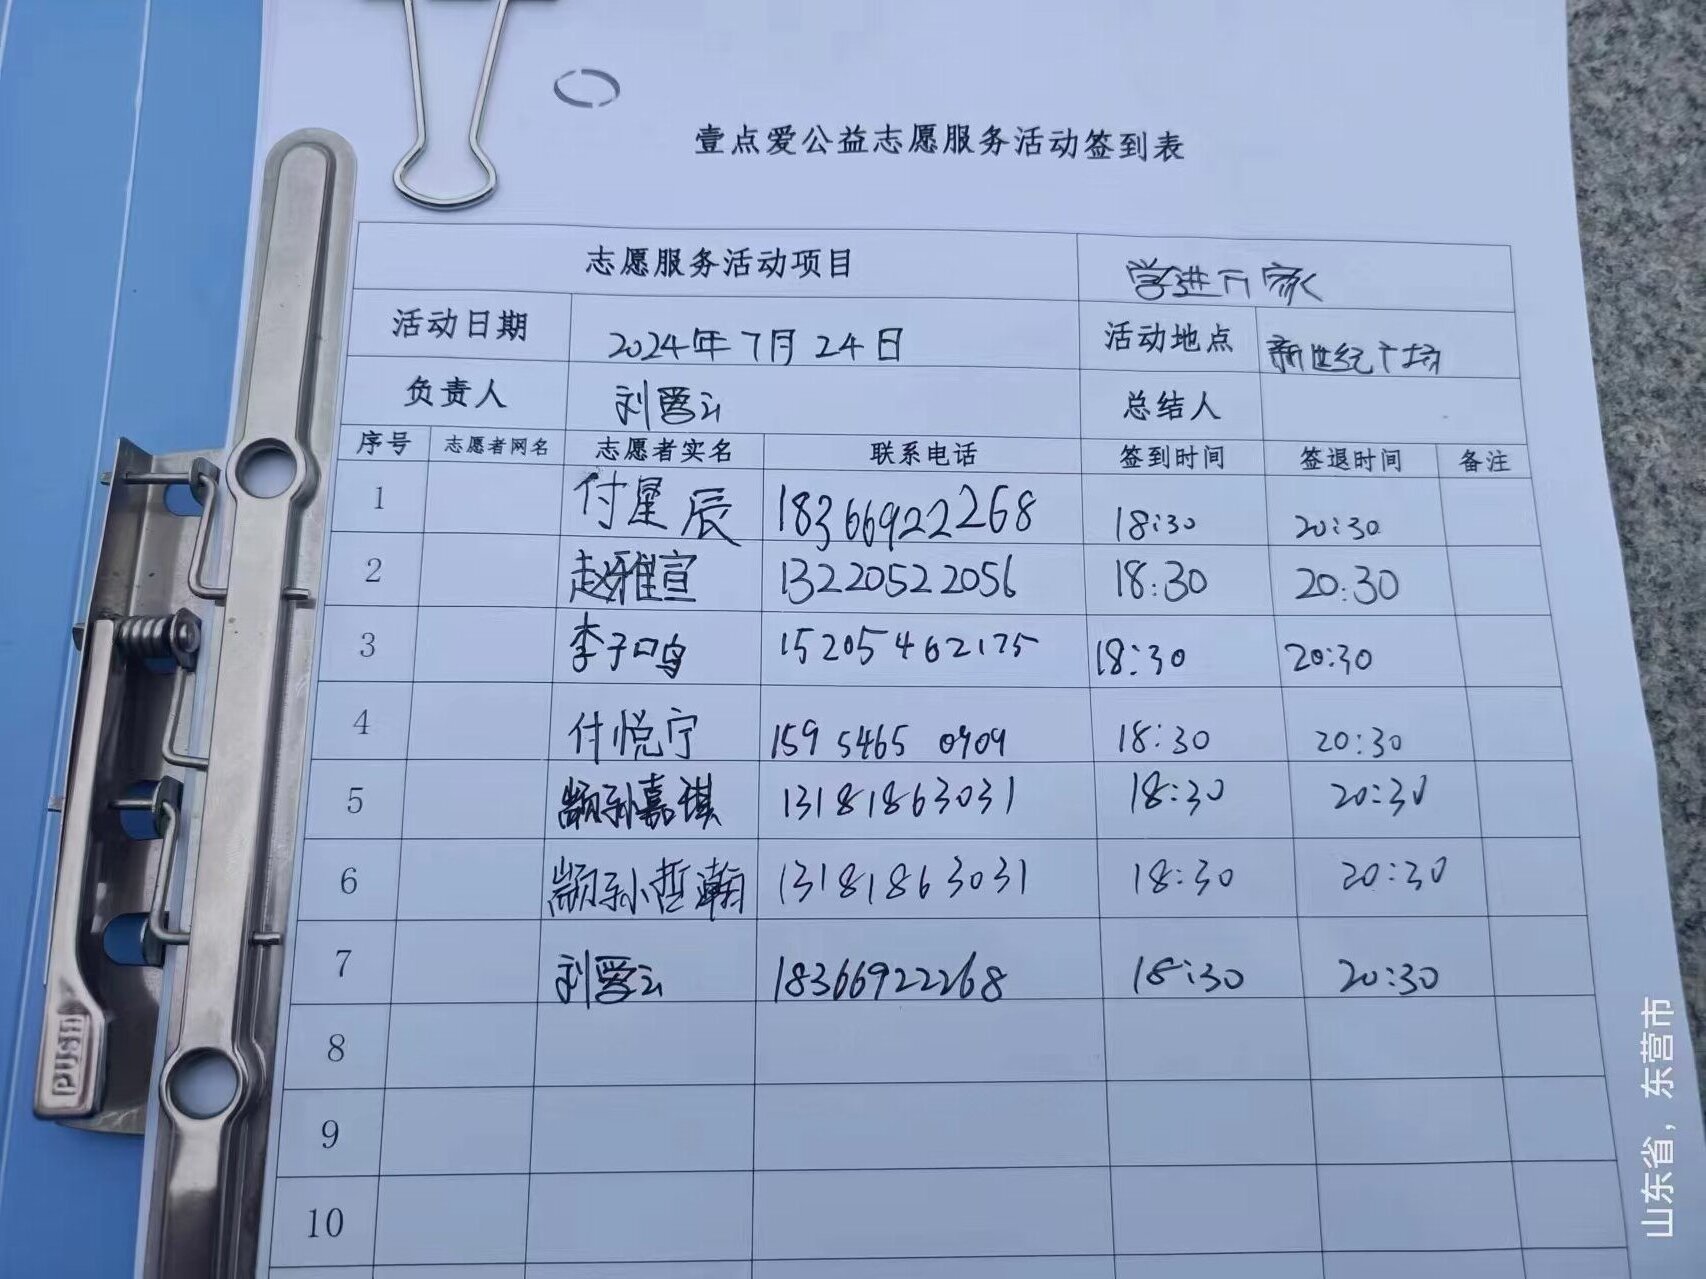 壹点爱公益志愿服务活动签到表
志愿服务活动项目 学进万家
活动日期 2024年7月24日 活动地点 新世纪广场
负责人 刘爱云 总结人
序号 志愿者网名 志愿者实名 联系电话 签到时间 签退时间 备注
1 付星辰 18366922268 18:30 20:30
2 赵雅宣 13220522056 18:30 20:30
3 李子鸣 15205462175 18:30 20:30
4 付悦宁 159 5465 0909 18:30 20:30
5 颛孙嘉琪 13181863031 18:30 20:30
6 颛孙哲瀚 13181863031 18:30 20:30
7 刘爱云 18366922268 18:30 20:30
8
9
10
PUSH
山东省，东营市